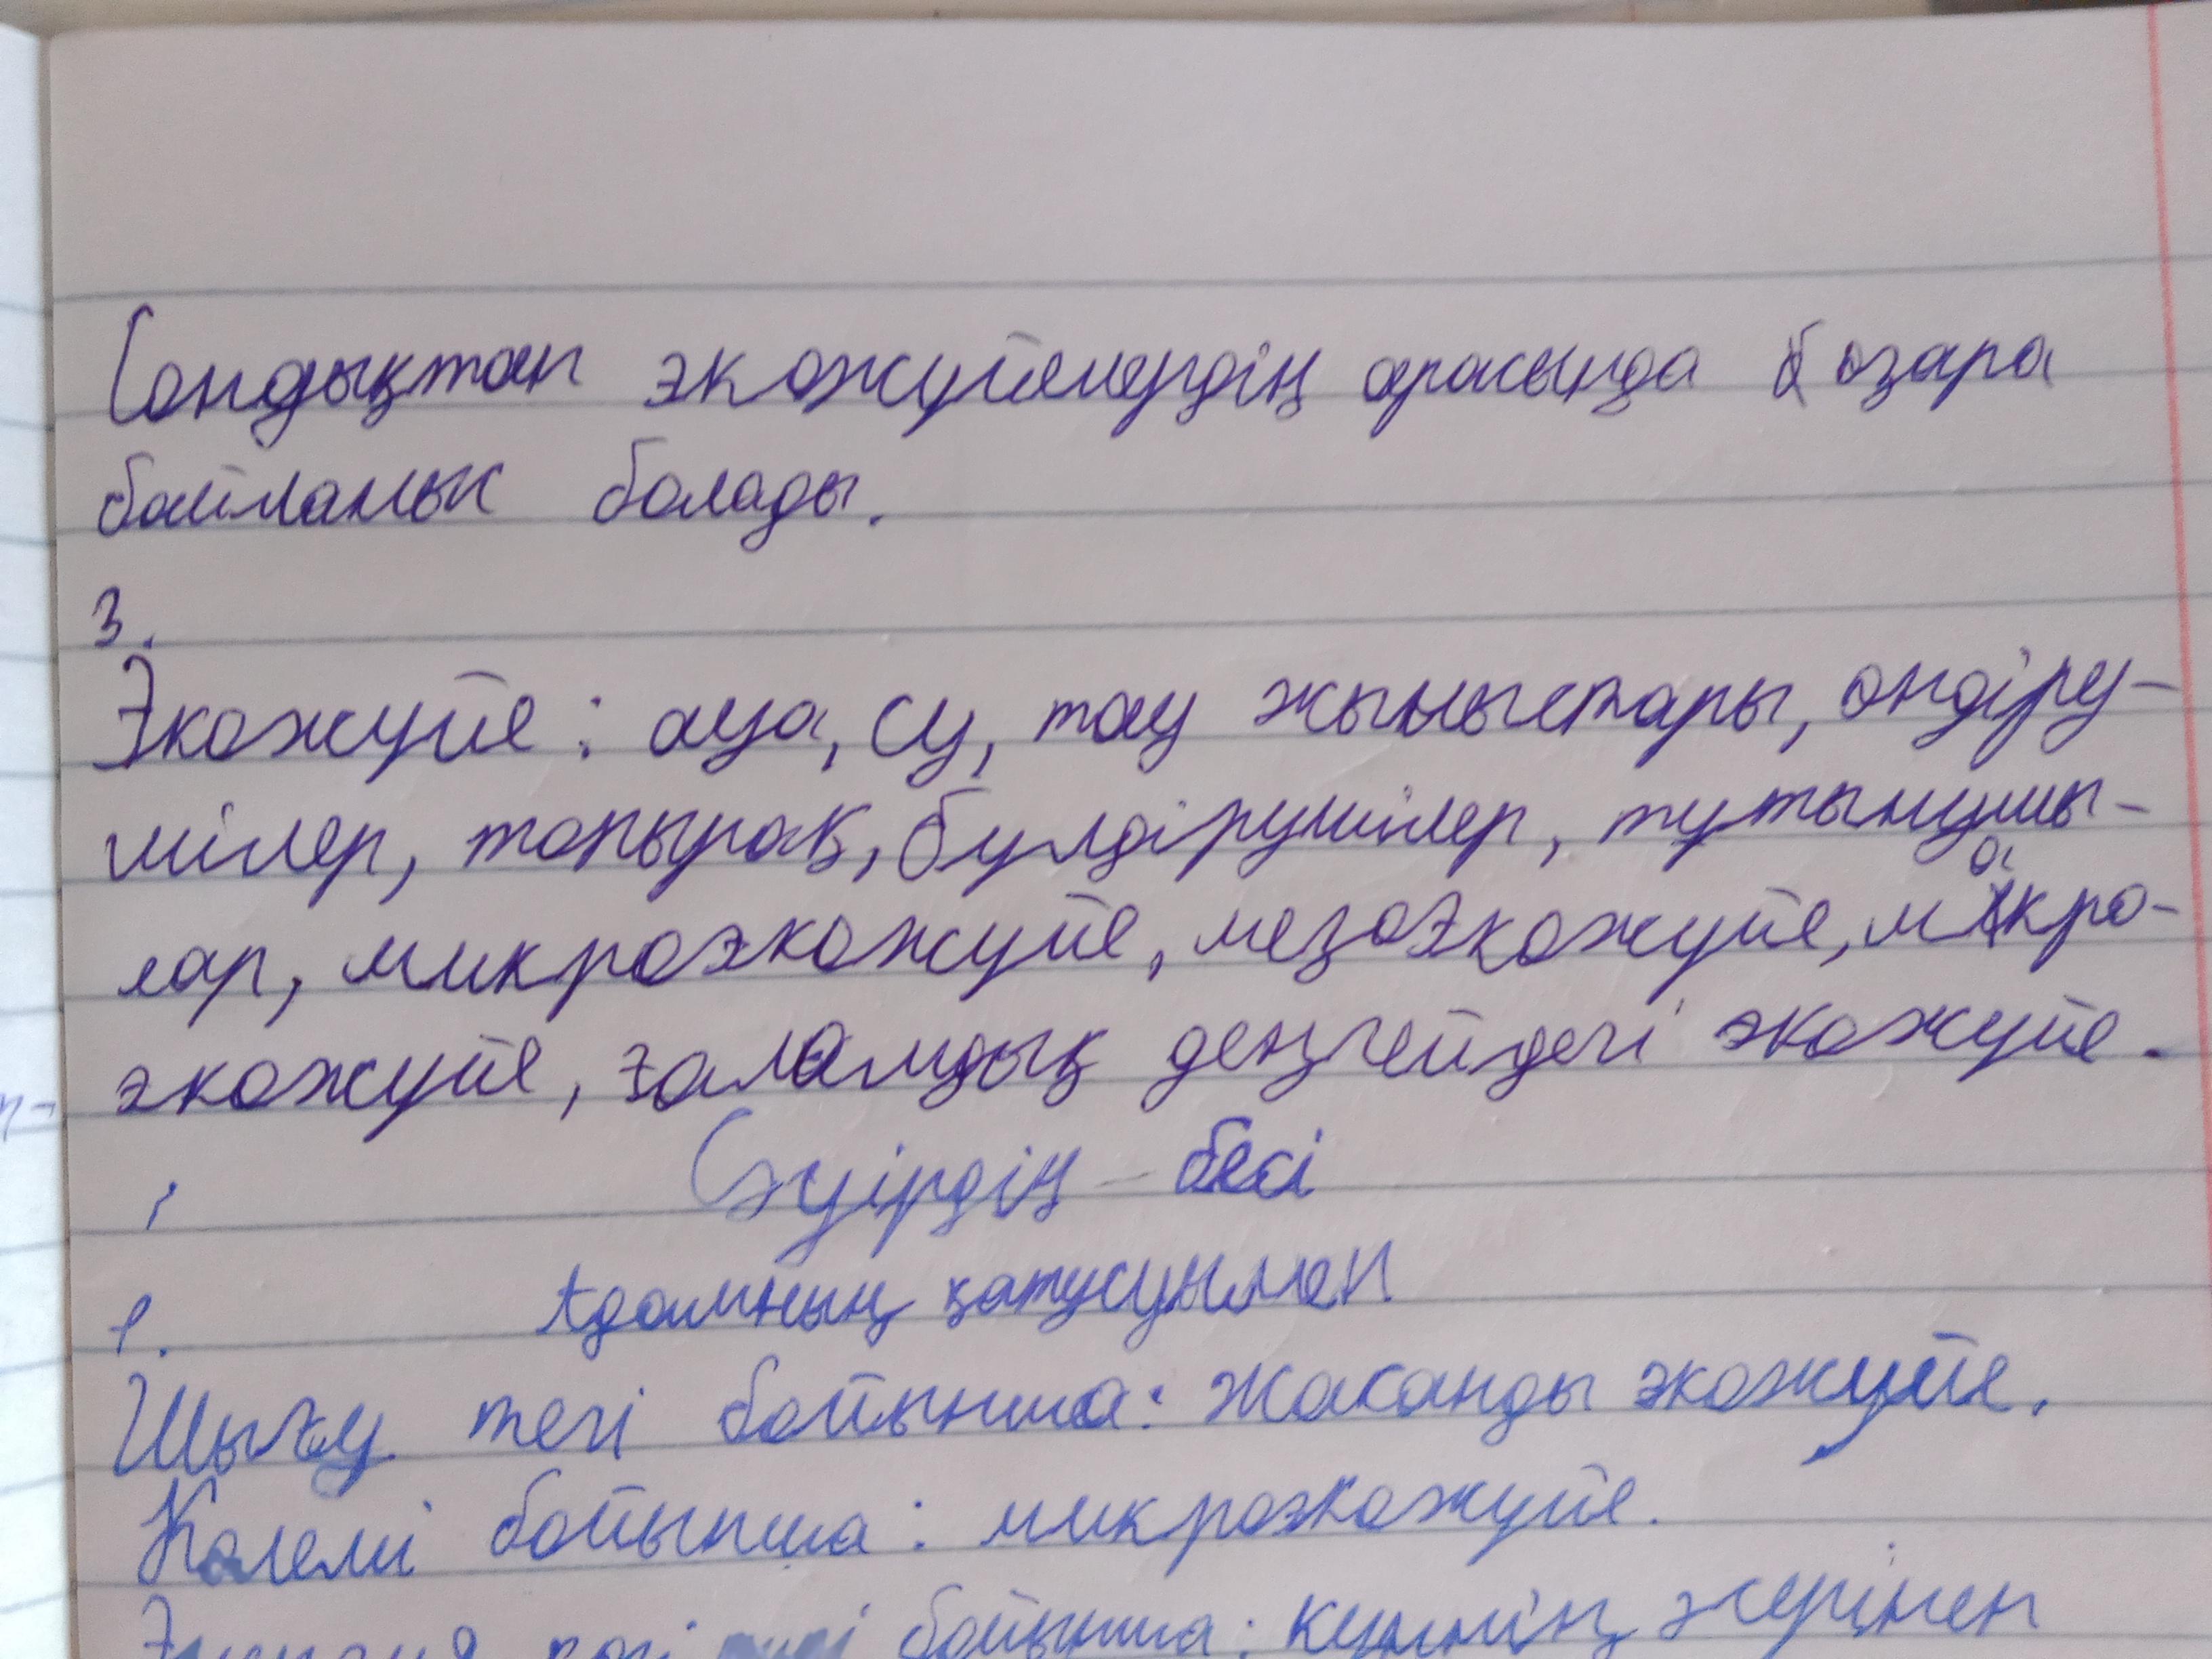 Сондықтан экожүйелердің арасында өзара
байланыс болады.
3.
Экожүйе: ауа, су, тау жыныстары, өндіру-
шілер, топырақ, бүлдірушілер, тұтынушы-
лар, микроэкожүйе, мезоэкожүйе, макро-
экожүйе, ғаламдық деңгейдегі экожүйе.
Сәуірдің бесі
1. Адамның қатусуымен
Шығу тегі бойынша: Жасанды экожүйе.
Көлемі бойынша: микроэкожүйе.
бойынша: күннің